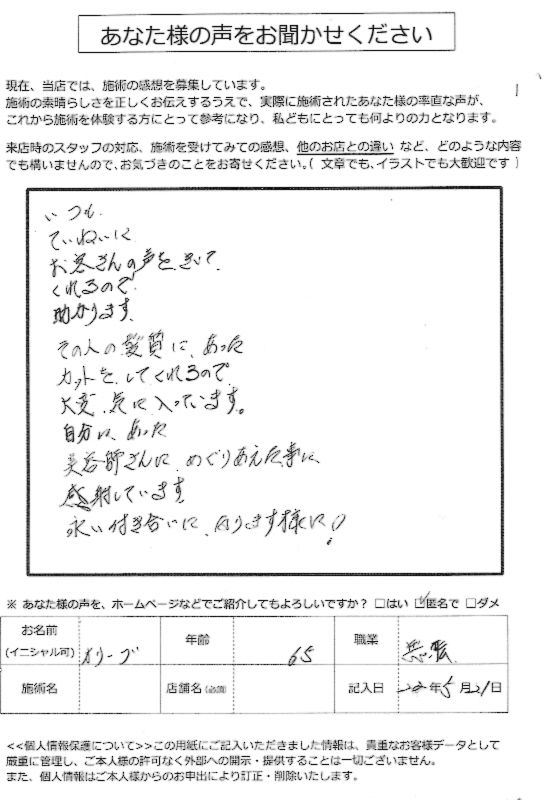 あなた様の声をお聞かせください
現在、当店では、施術の感想を募集しています。
施術の素晴らしさを正しくお伝えするうえで、実際に施術されたあなた様の率直な声が、
これから施術を体験する方にとって参考になり、私どもにとっても何よりの力となります。
来店時のスタッフの対応、施術を受けてみての感想、他のお店との違い など、どのような内容
でも構いませんので、お気づきのことをお寄せください。( 文章でも、イラストでも大歓迎です )
いつも、
ていねいに
お客さんの声を、きいて、
くれるので
助かります。
その人の髪質に、あった
カットを、してくれるので、
大変、気に入っています。
自分に、あった
美容師さんに、めぐりあえた事に、
感射しています
永い付き合いに、なります様に!
※ あなた様の声を、ホームページなどでご紹介してもよろしいですか? □はい ☑匿名で □ダメ
お名前 (イニシャル可) オリーブ 年齢 65 職業 無職
施術名 店舗名(必須) 記入日 22年5月21日
<<個人情報保護について>>この用紙にご記入いただきました情報は、貴重なお客様データとして
厳重に管理し、ご本人様の許可なく外部への開示・提供することは一切ございません。
また、個人情報はご本人様からのお申出により訂正・削除いたします。